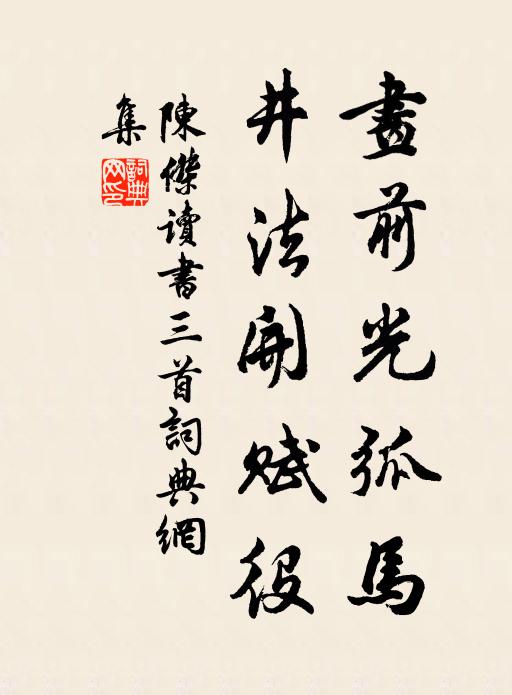 畫前光弧馬
井法開賦役
陳傑讀書三首詞典網
集
詞典网印